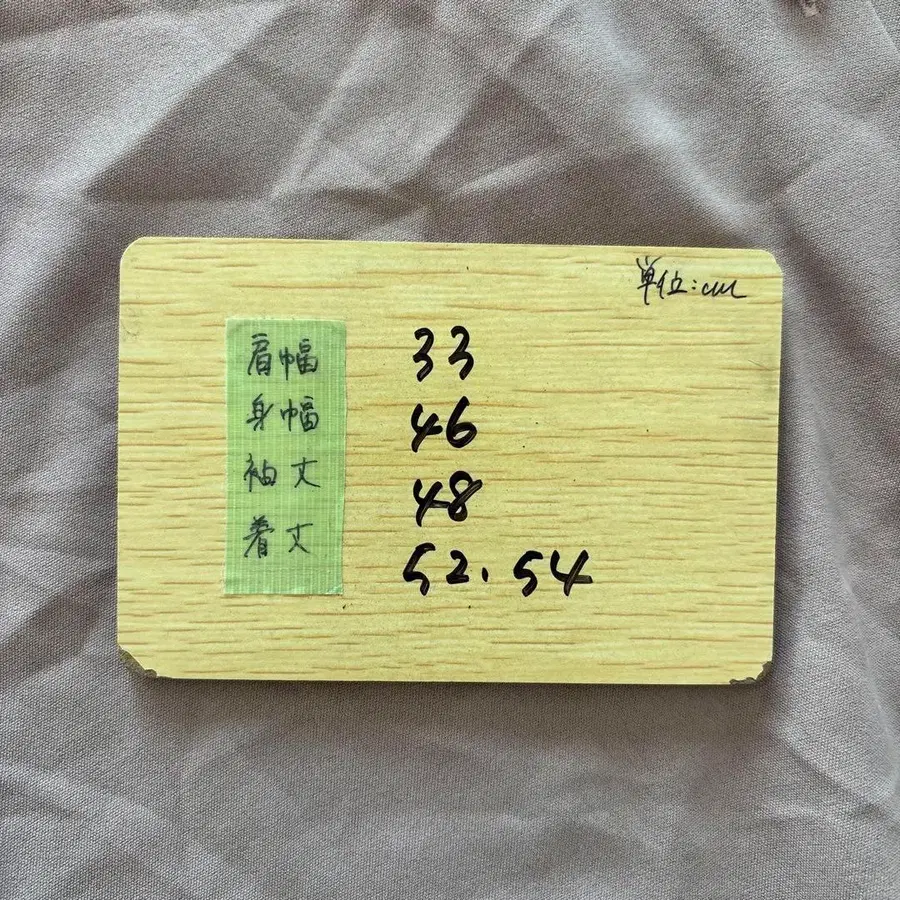 単位:cm
肩幅 33
身幅 46
袖丈 48
着丈 52.54